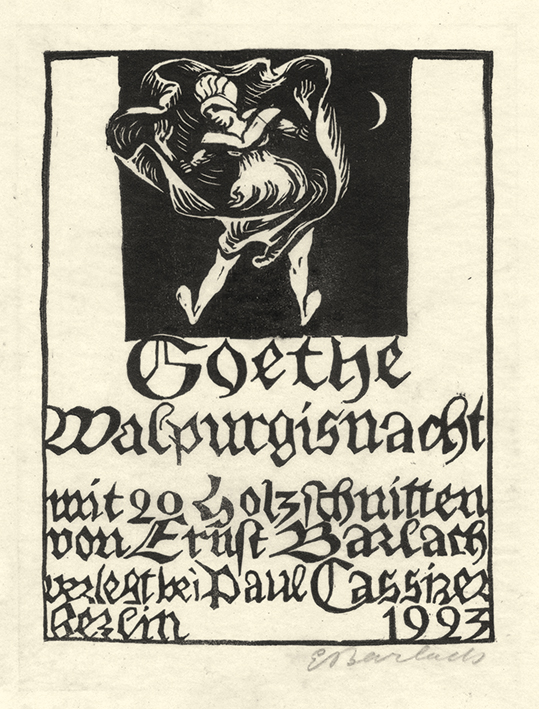 Goethe
Walpurgisnacht
mit 20 Holzschnitten
von Ernst Barlach
verlegt bei Paul Cassirer
Berlin 1923
EBarlach